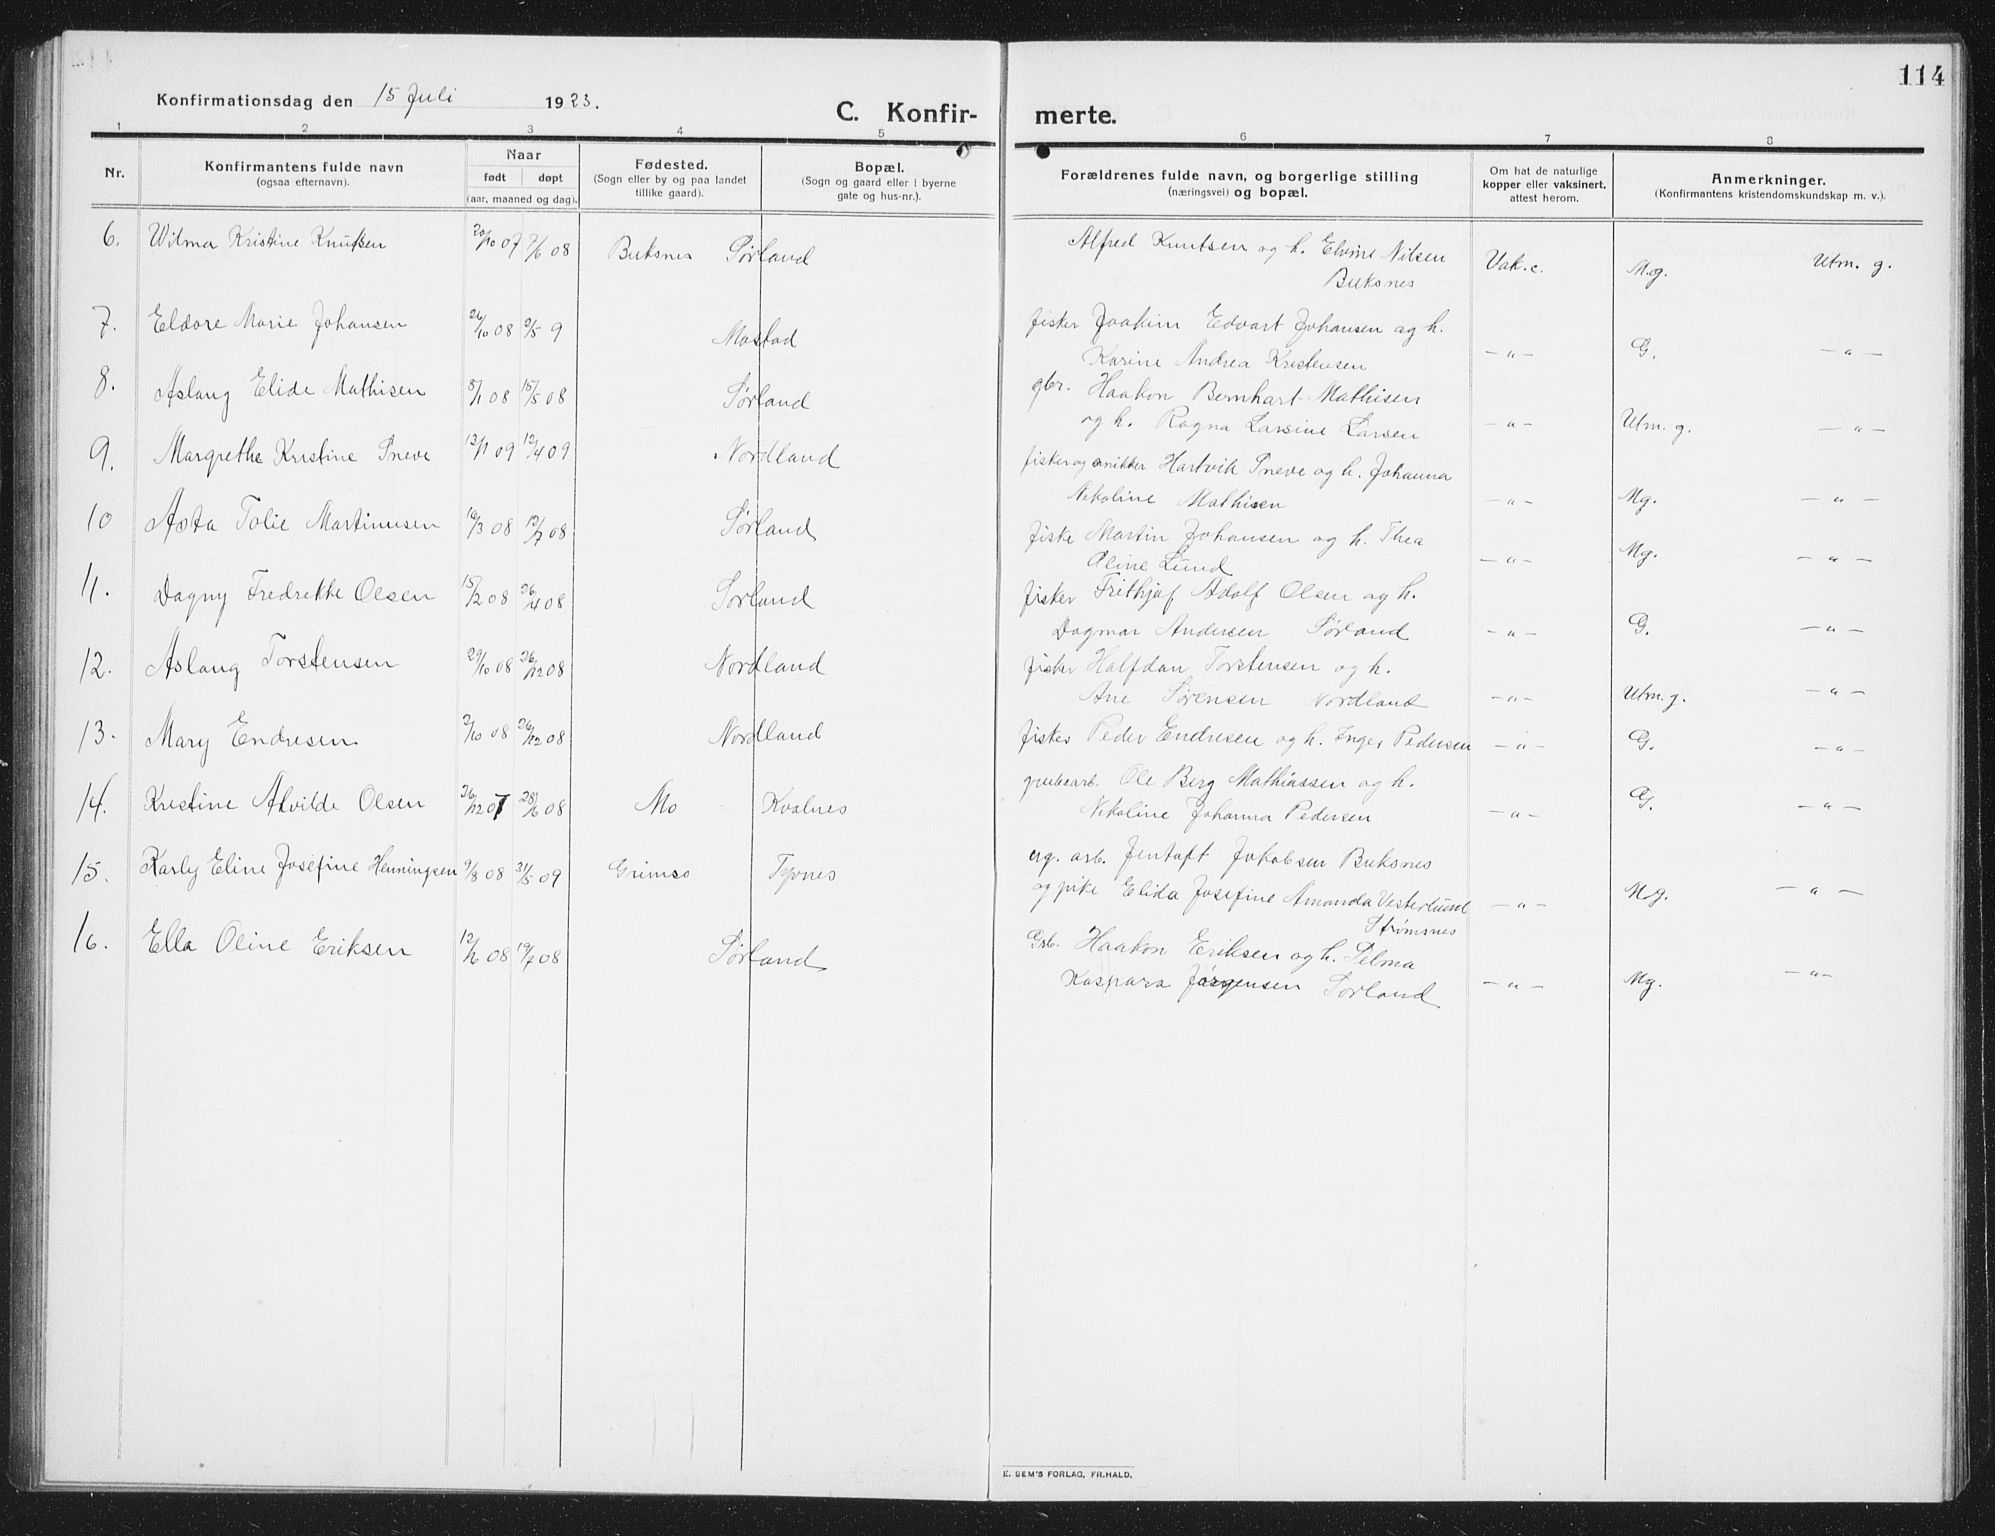 114
Konfirmationsdag den 15 Juli 1923.
C. Konfir-
merte.
1 2 3 4 5 6 7 8
Nr.
Konfirmantens fulde navn
(ogsaa efternavn).
Naar
født døpt
(aar, maaned og dag).
Fødested.
(Sogn eller by og paa landet
tillike gaard).
Bopæl.
(Sogn og gaard eller i byerne
gate og hus-nr.).
Forældrenes fulde navn, og borgerlige stilling
(næringsvei) og bopæl.
Om hat de naturlige
kopper eller vaksinert,
attest herom.
Anmerkninger.
(Konfirmantens kristendomskundskap m. v.).
6. Wilma Kristine Knutsen 20/10 07 7/6 08 Buksnes Sørland Alfred Knutsen og h. Elvine Nilsen Vak.c. M.g. Utm. g.
Buksnes
7. Eldore Marie Johansen 26/10 08 2/5 9 Mostad fisker Joakim Edvart Johansen og h.
Karine Andrea Kristensen — " — G. — " —
8. Aslaug Elide Mathisen 8/1 08 15/5 08 Sørland gbr. Haakon Bernhart Mathisen
og h. Ragna Larsine Larsen — " — Utm. g. — " —
9. Margrethe Kristine Sneve 13/1 09 12/4 09 Nordland fisker og snikker Hartvik Sneve og h. Johanna
Nikoline Mathisen — " — Mg. — " —
10 Asta Tolie Martinusen 16/3 08 12/7 08 Sørland fiske Martin Johansen og h. Thea
Oline Lund — " — Mg. — " —
11. Dagny Fredrekke Olsen 15/2 08 26/4 08 Sørland fisker Frithjof Adolf Olsen og h.
Dagmar Andersen Sørland — " — G. — " —
12. Aslaug Torstensen 29/10 08 26/12 08 Nordland fisker Halfdan Torstensen og h.
Ane Sørensen Nordland — " — Utm. g. — " —
13. Mary Endresen 2/10 08 26/12 08 Nordland fisker Peder Endresen og h. Inger Pedersen — " — G. — " —
14. Kristine Alvilde Olsen 26/12 07 28/6 08 Mo Kvalnes grubearb. Ole Berg Mathiassen og h.
Nikoline Johanna Pedersen — " — G. — " —
15. Karly Eline Josefine Henningsen 9/8 08 31/5 09 Grimsø erg. arb. Jentoft Jakobsen Buksnes
og pike Elida Josefine Amanda Vesterlund — " — Mg. — " —
Strømsnes
16. Ella Oline Eriksen 12/6 08 19/7 08 Sørland Grb. Haakon Eriksen og h. Selma
Kaspara Jørgensen Sørland — " — Mg. — " —
E. SEM'S FORLAG, FR.HALD.